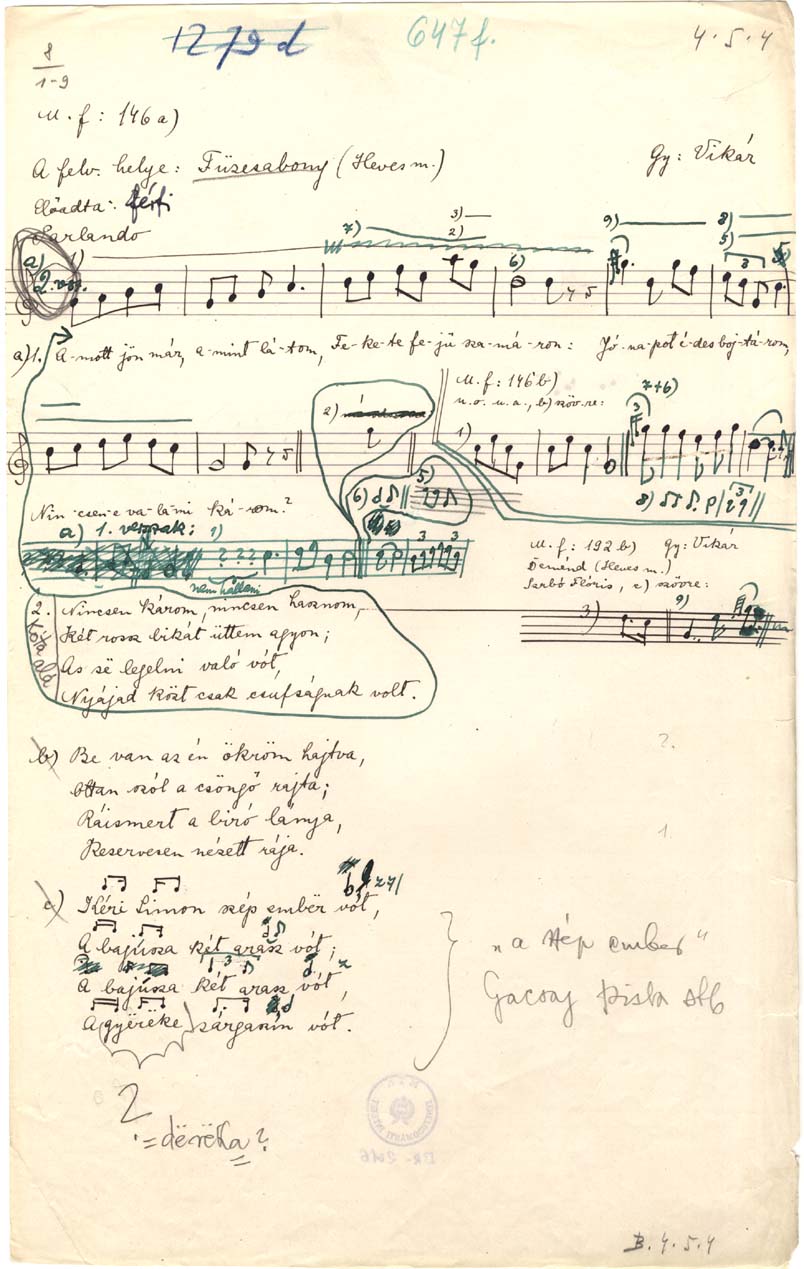 8
1-9
1279 d
647 f.
4.5.4
M. f: 146 a)
A felv. helye: Füzesabony (Heves m.)
Gy: Vikár
Előadta: férfi
Parlando
1)
7)
3)
2)
9)
8)
5)
a)
2. vsz.
6)
3
a) 1. A-mott jön már, a-mint lá-tom, Fe-ke-te fe-jü sza-má-ron: Jó-na-pot é-des boj-tá-rom,
M. f: 146 b)
u. o. u. a., b) szövre:
7+6)
2)
1)
3
6)
5)
8)
3
Nin-csen-e va-la-mi ká-rom?
a) 1. verszak:
? ? ?
3 3
nem hallani
M. f: 192 b) Gy: Vikár
Deménd (Heves m.)
Szabó Flóris, c) szövre:
3) 9)
Kóta alá
2. Nincsen károm, nincsen hasznom,
Két rossz bikát üttem agyon;
As së legelni való vót,
Nyájad közt csak csufságnak volt.
b) Be van az én ökröm hajtva,
Ottan szól a csöngő rajta;
Ráismert a biró lánya,
Keservesen nézett rája.
c) Kéri Simon szép embër vót,
A bajúsza két arasz vót;
A bajúsza két arasz vót,
A gyëréke sárgaszín vót.
„a szép ember"
Gacsaj Pista stb
?
1.
2
= dërëka?
B. 4. 5. 4